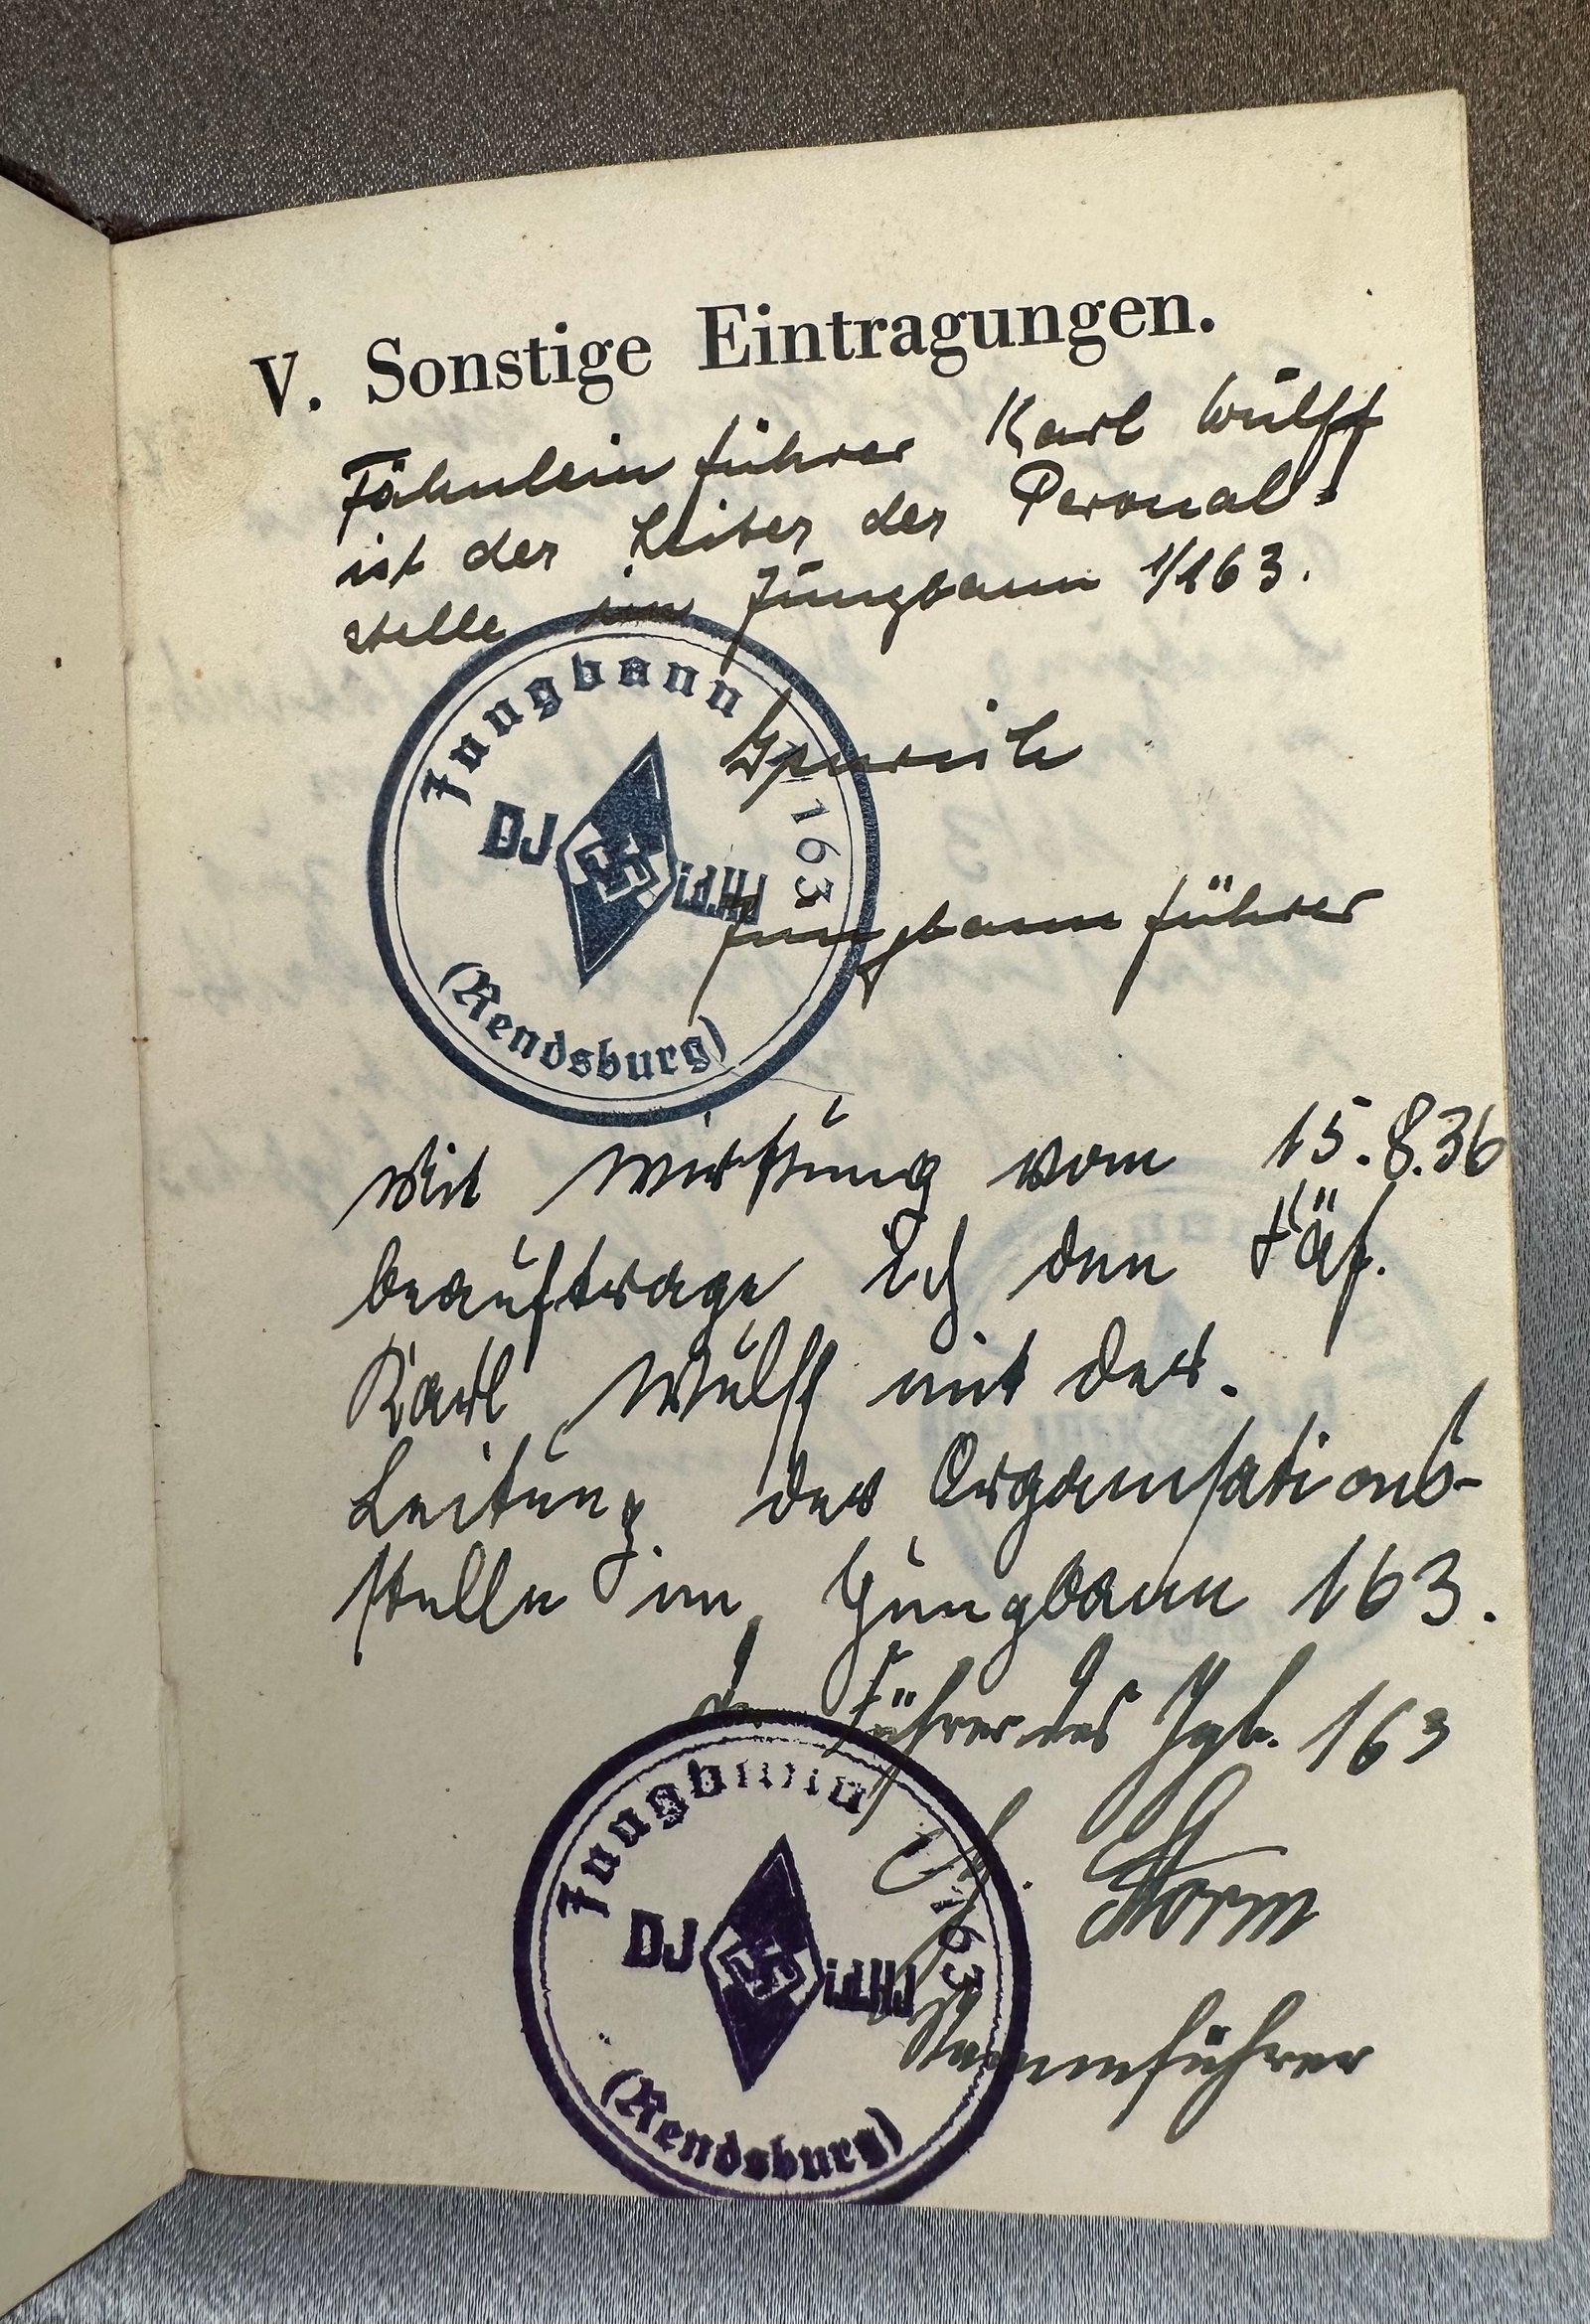 V. Sonstige Eintragungen.
Fähnleinführer Karl Wulff
ist der Leiter der Peronal-
stelle im Jungbann 1/163.
Jungbann 163
DJ i.d.HJ
(Rendsburg)
Jungbannführer
Mit Wirkung vom 15.8.36
beauftrage ich den Fäf.
Karl Wulff mit der
Leitung der Organisations-
stelle im Jungbann 163.
Der Führer des Jgb. 163
Storm
Jungbann 163
DJ i.d.HJ
(Rendsburg)
Stammführer